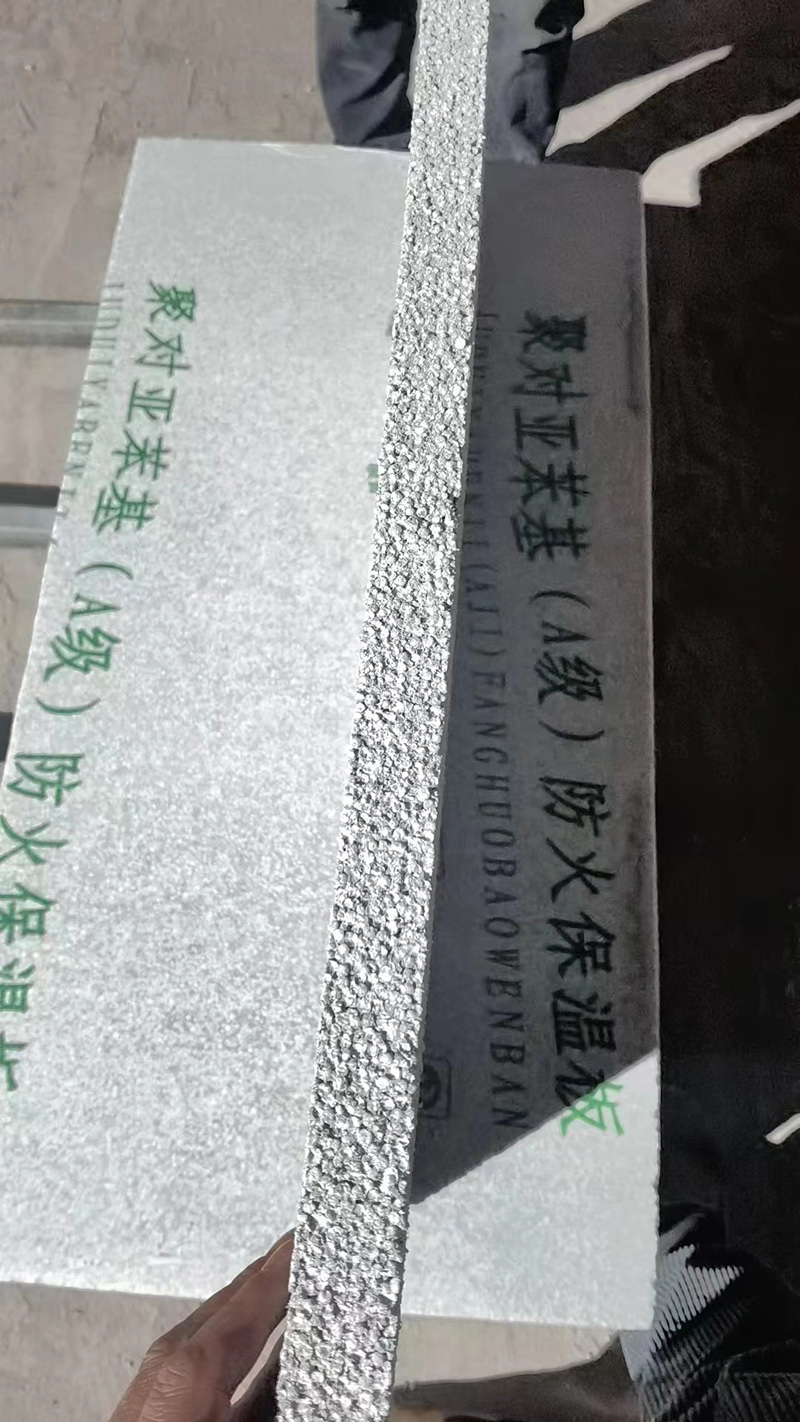 聚对亚苯基（A级）防火保温板
(AJI)FANGHUOBAOWENBAN
聚对亚苯基（A级）防火保温